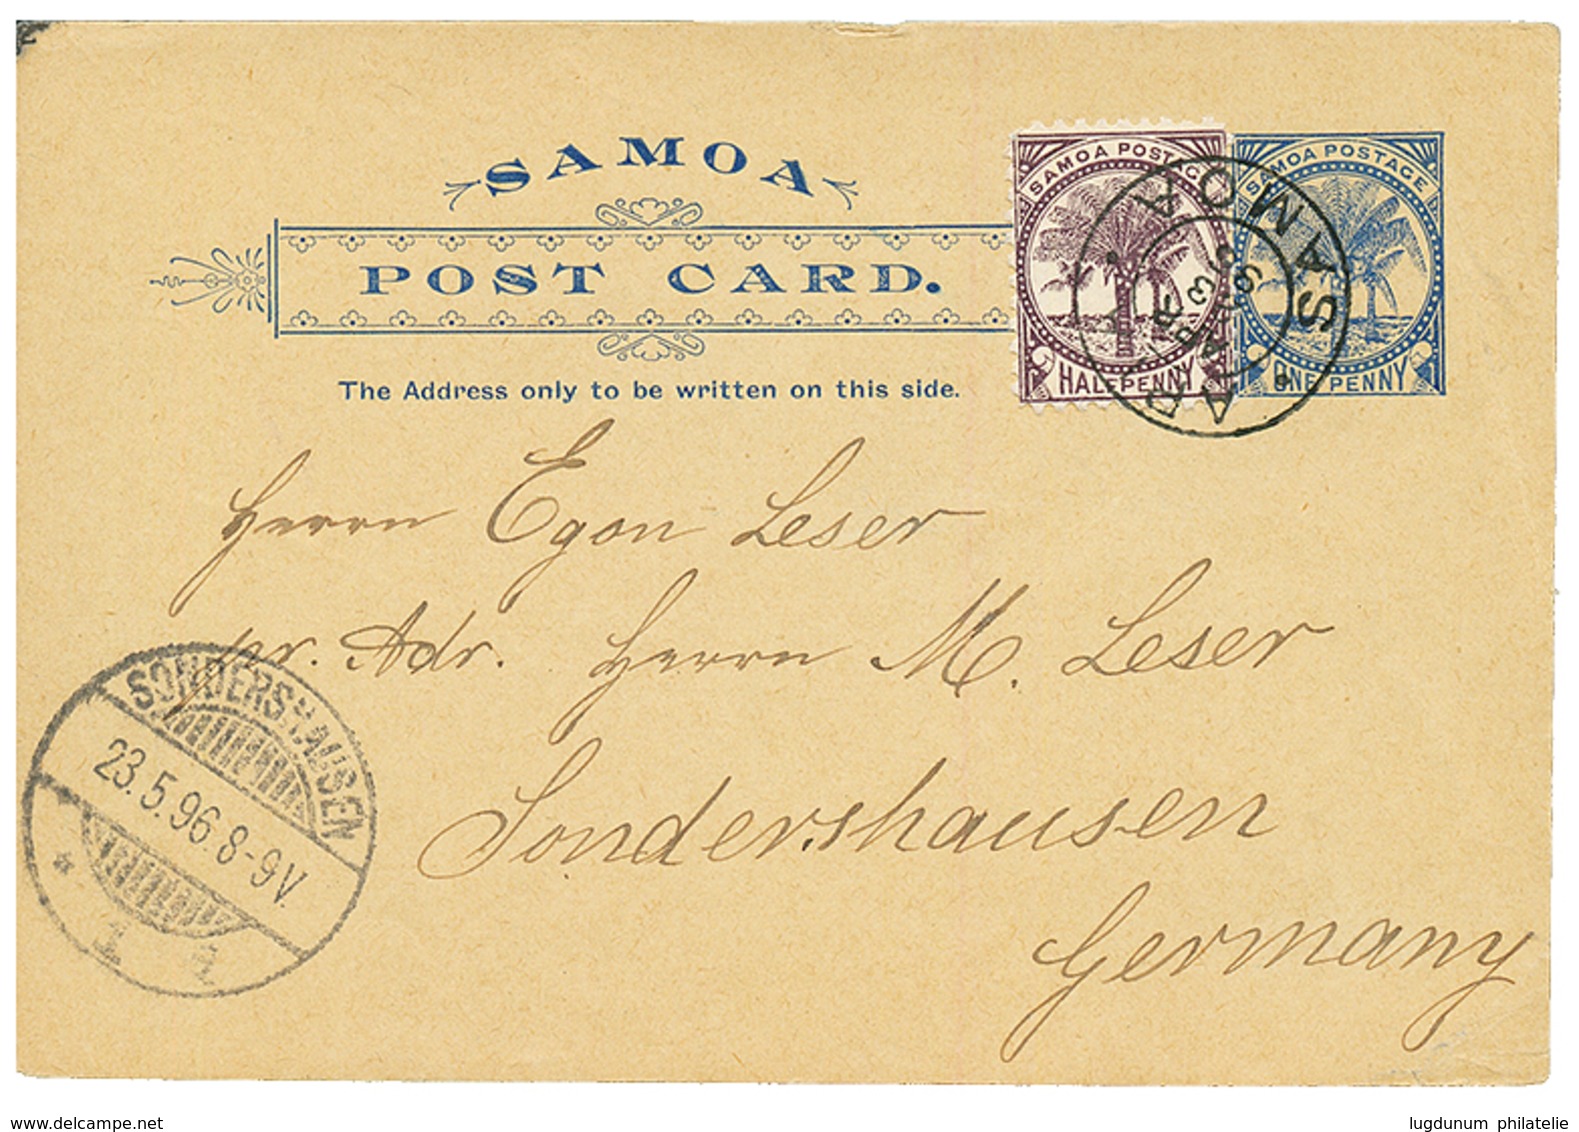 SAMOA
POST CARD.
The Address only to be written on this side.
SAMOA POSTAGE
HALFPENNY
SAMOA POSTAGE
ONE PENNY
APIA
SAMOA
Herrn Egon Leser
pr. Adr. Herrn M. Leser
Sondershausen
Germany
SONDERSHAUSEN
23.5.96 8-9V.
* 1 1
www.delcampe.net
lugdunum philatelie